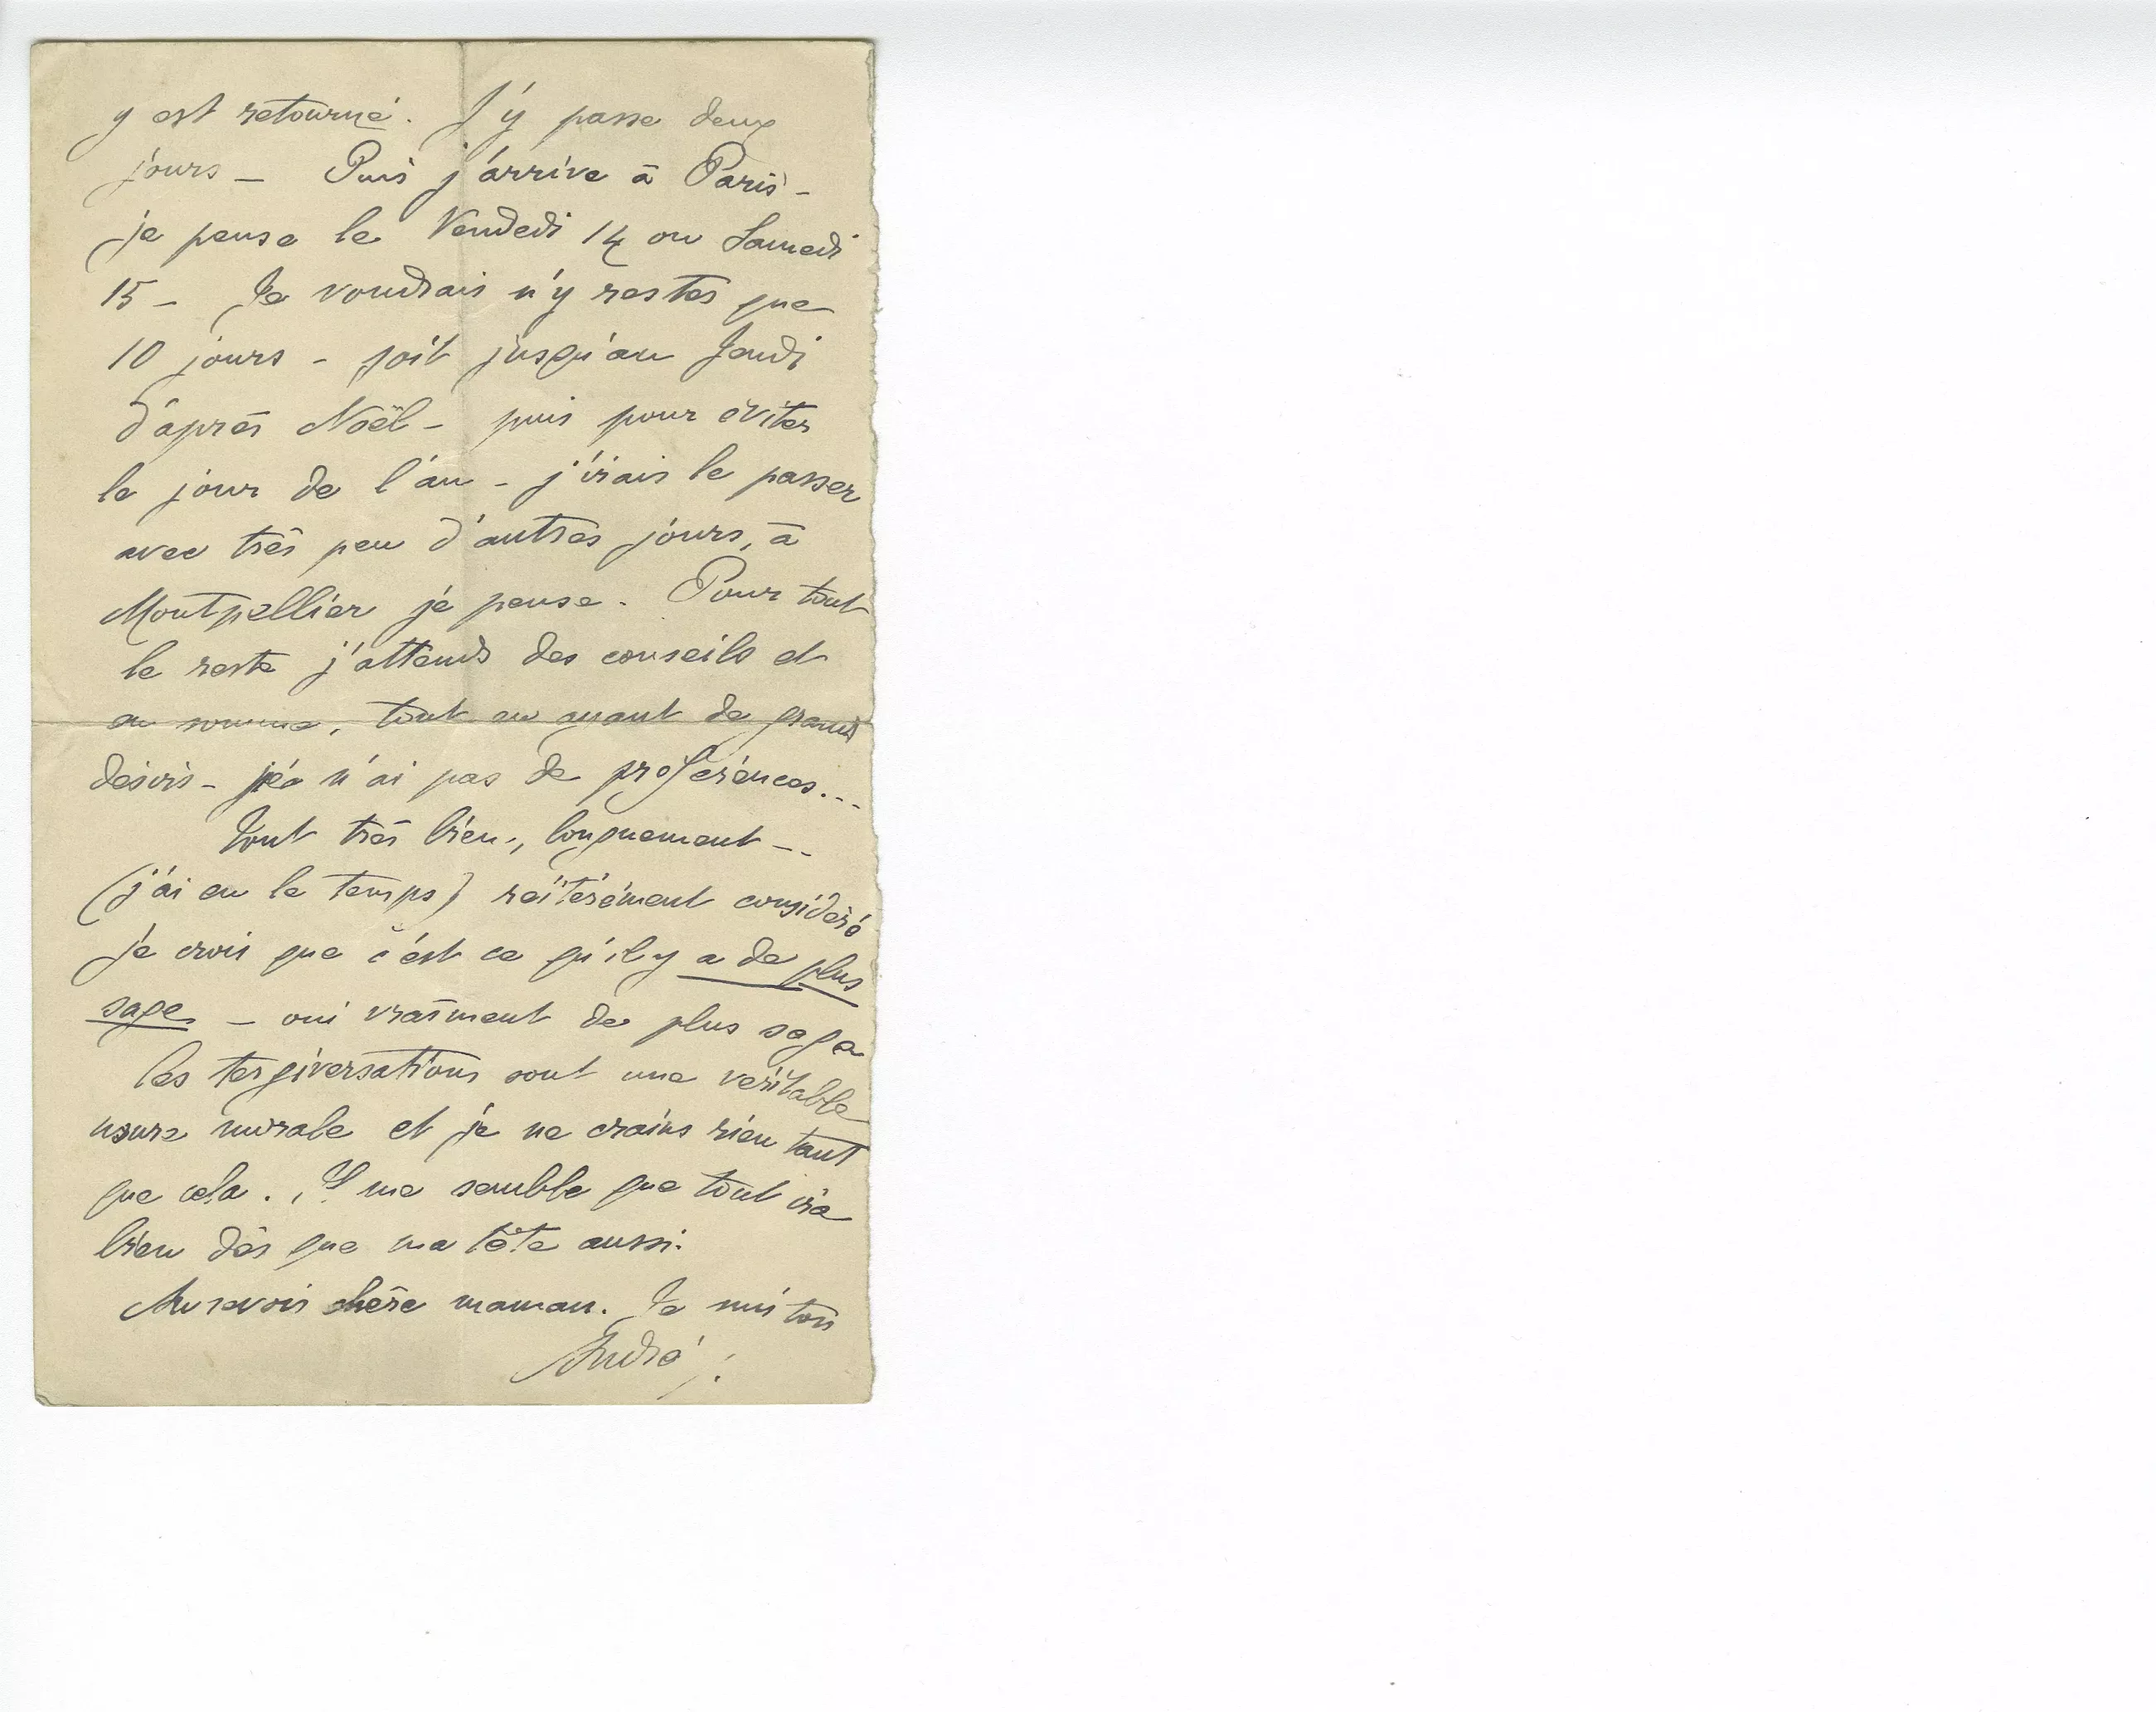 y est retourné. J'y passe deux
jours – Puis j'arrive à Paris –
je pense le Vendedi 14 ou Samedi
15 – Je voudrais n'y rester que
10 jours – soit jusqu'au Jeudi
d'après Noël – puis pour éviter
le jour de l'an – j'irais le passer
avec très peu d'autres jours, à
Montpellier je pense. Pour tout
le reste j'attends des conseils et
en somme, tout en ayant de grands
désirs – je n'ai pas de préférences...
Tout très bien, longuement --
(j'ai eu le temps) réitérément considéré
je crois que c'est ce qu'il y a de plus
sage – oui vraiment de plus sage
les tergiversations sont une véritable
usure morale et je ne crains rien tant
que cela. Il me semble que tout ira
bien dès que ma tête aussi.
Au revoir chère maman. Je suis ton
André.